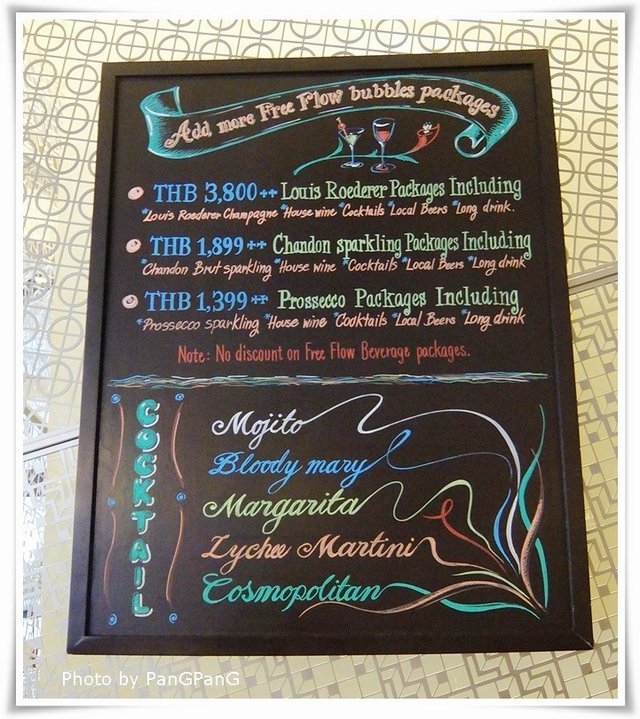 Add more Free Flow bubbles packages
THB 3,800++ Louis Roederer Packages Including
*Louis Roederer Champagne *House wine *Cocktails *Local Beers *Long drink.
THB 1,899++ Chandon sparkling Packages Including
*Chandon Brut sparkling *House wine *Cocktails *Local Beers *Long drink
THB 1,399++ Prossecco Packages Including
*Prossecco sparkling *House wine *Cocktails *Local Beers *Long drink
Note: No discount on Free Flow Beverage packages.
COCKTAIL
Mojito
Bloody mary
Margarita
Lychee Martini
Cosmopolitan
Photo by PanGPanG